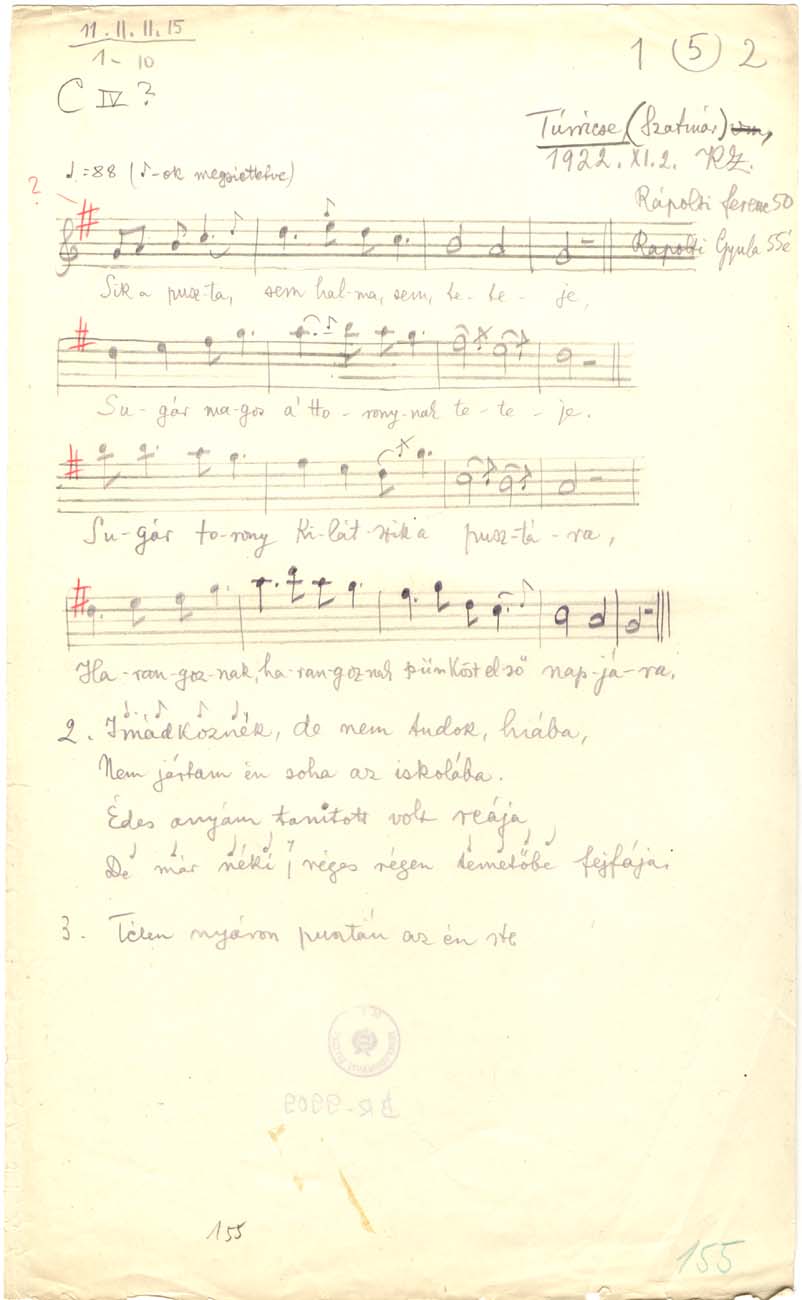 11.II.II.15
1-10
1 (5) 2
C IV ?
Túrricse, (Szatmár)
1922. XI. 2. KZ.
♩=88 (♪-ok megsiettetve)
Rápolti Ferenc 50
?
Rápolti Gyula 55é
Sik a pusz-ta, sem hal-ma, sem, te-te-je,
Su-gár ma-gos a' to-rony-nak te-te-je.
Su-gár to-rony ki-lát-szik a pusz-tá-ra,
Ha-ran-goz-nak, ha-ran-goznak pünkőst első nap-já-ra,
2. Imádkoznék, de nem tudok, hiába,
Nem jártam én soha az iskolába.
Édes anyám tanitott volt reája
De már néki, réges régen temetőbe fejfája.
3. Télen nyáron pusztán az én
155
155